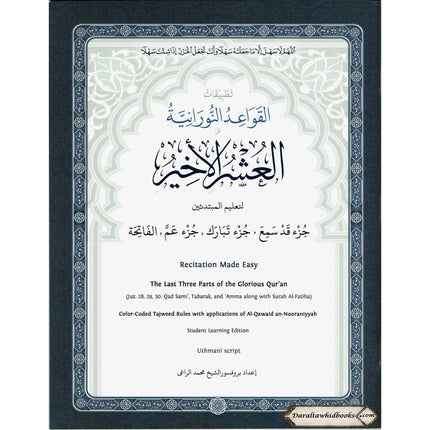 اللهم لا سهل إلا ما جعلته سهلا وأنت تجعل الحزن إذا شئت سهلا
تطبيقات
القواعد النورانية
على
العشر الأخير
لتعليم المبتدئين
جزء قد سمع , جزء تبارك , جزء عم , الفاتحة
Recitation Made Easy
The Last Three Parts of the Glorious Qur'an
(Juz. 28, 29, 30: Qad Sami', Tabarak, and 'Amma along with Surah Al-Fatiha)
Color-Coded Tajweed Rules with applications of Al-Qawaid an-Nooraniyyah
Student Learning Edition
Uthmani script
إعداد بروفسور الشيخ محمد الراعي
Daraltawhidbooks.com